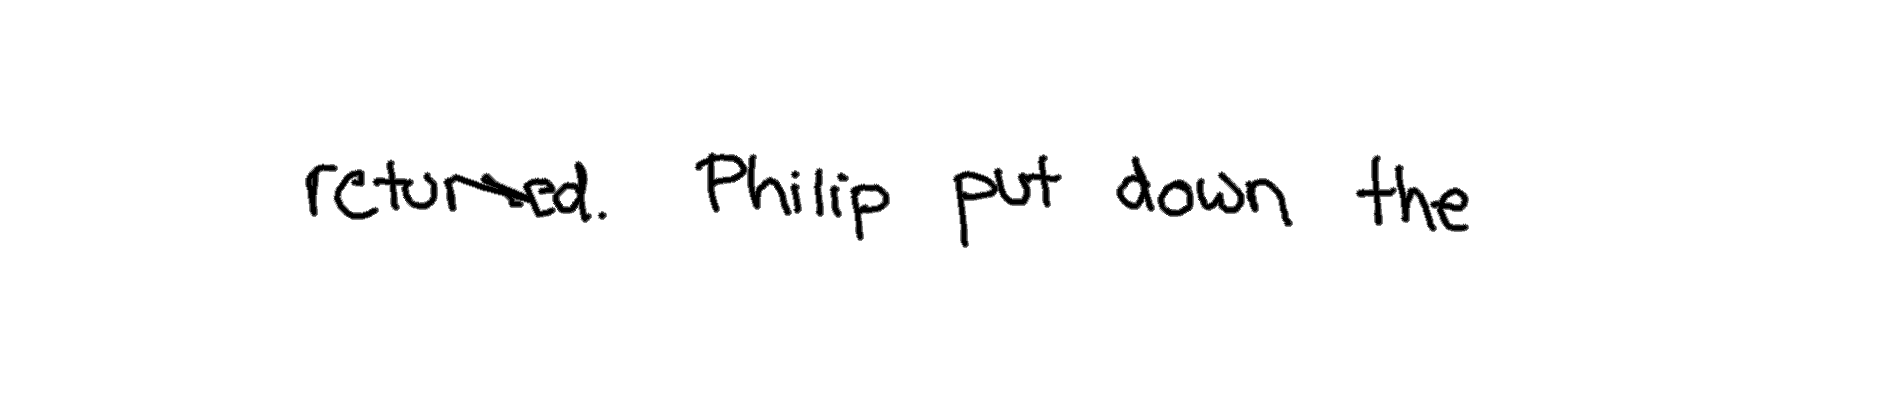 returned. Philip put down the